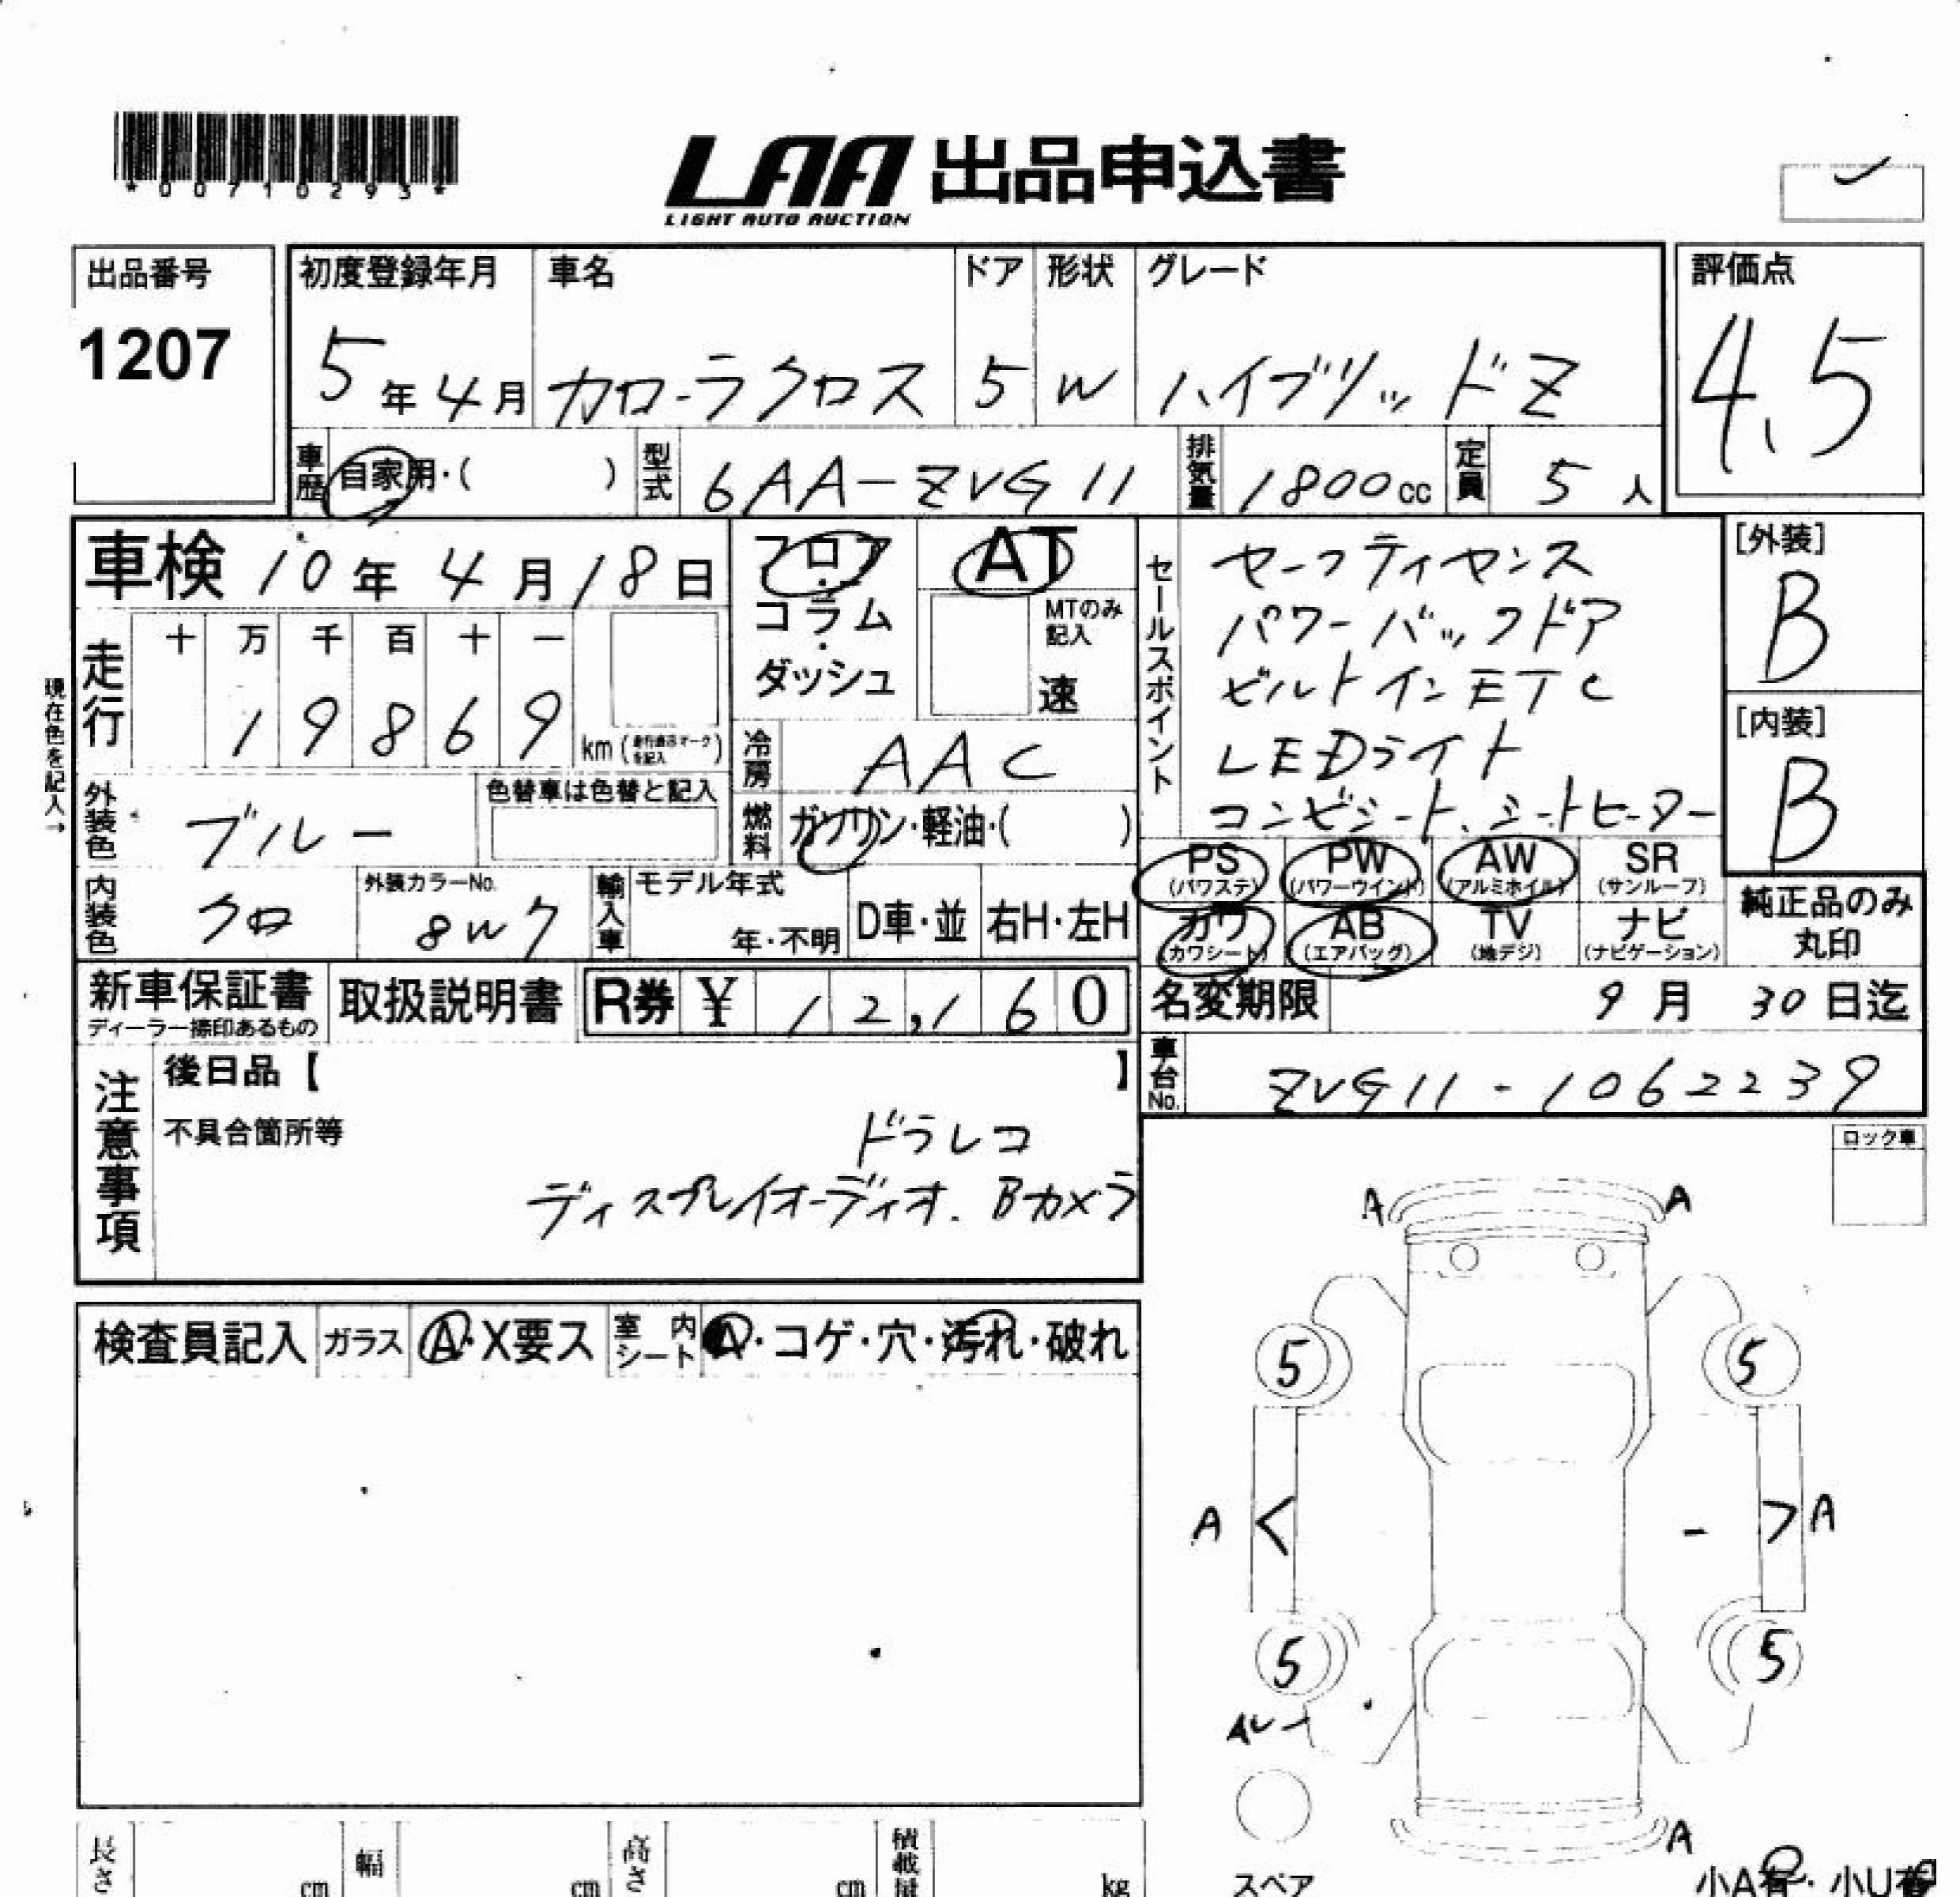 *00710293*
LAA 出品申込書
LIGHT AUTO AUCTION
出品番号 1207
初度登録年月 5年4月
車名 カローラクロス
ドア 5
形状 W
グレード ハイブリッドZ
評価点 4.5
車歴 自家用・( )
型式 6AA-ZVG11
排気量 1800cc
定員 5人
車検 10年4月18日
フロア・コラム・ダッシュ
AT
MTのみ記入
速
セールスポイント
セーフティセンス
パワーバックドア
ビルトインETC
LEDライト
コンビシート、シートヒーター
[外装] B
[内装] B
現在色を記入→
走行 十 万 千 百 十 一
19869 km (走行表示マークを記入)
冷房 AAC
燃料 ガソリン・軽油・( )
外装色 ブルー
色替車は色替と記入
内装色 クロ
外装カラーNo. 8W7
輸入車 モデル年式 年・不明
D車・並 右H・左H
PS (パワステ) PW (パワーウインド) AW (アルミホイル) SR (サンルーフ)
カワ (カワシート) AB (エアバッグ) TV (地デジ) ナビ (ナビゲーション)
純正品のみ丸印
新車保証書
ディーラー捺印あるもの
取扱説明書
R券 ¥12,160
名変期限 9月30日迄
車台No. ZVG11-1062239
注意事項
後日品【 】
不具合箇所等
ドラレコ
ディスプレイオーディオ. Bカメラ
ロック車
検査員記入 ガラス A・X要ス 室内シート A・コゲ・穴・汚れ・破れ
A A
5 5
A A
5 5
A
スペア
小A有・小U有
長さ cm 幅 cm 高さ cm 積載量 kg